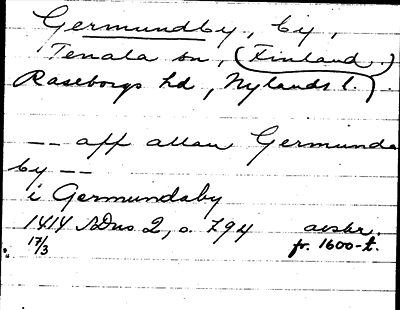 Germundby, by,
Tenala sn, (Finland.)
Raseborgs hd, Nylands l.).
-- aff allan Germunda
by --
i Germundaby
1414 SDns 2, s. 794 avskr.
17/3 fr. 1600-t.